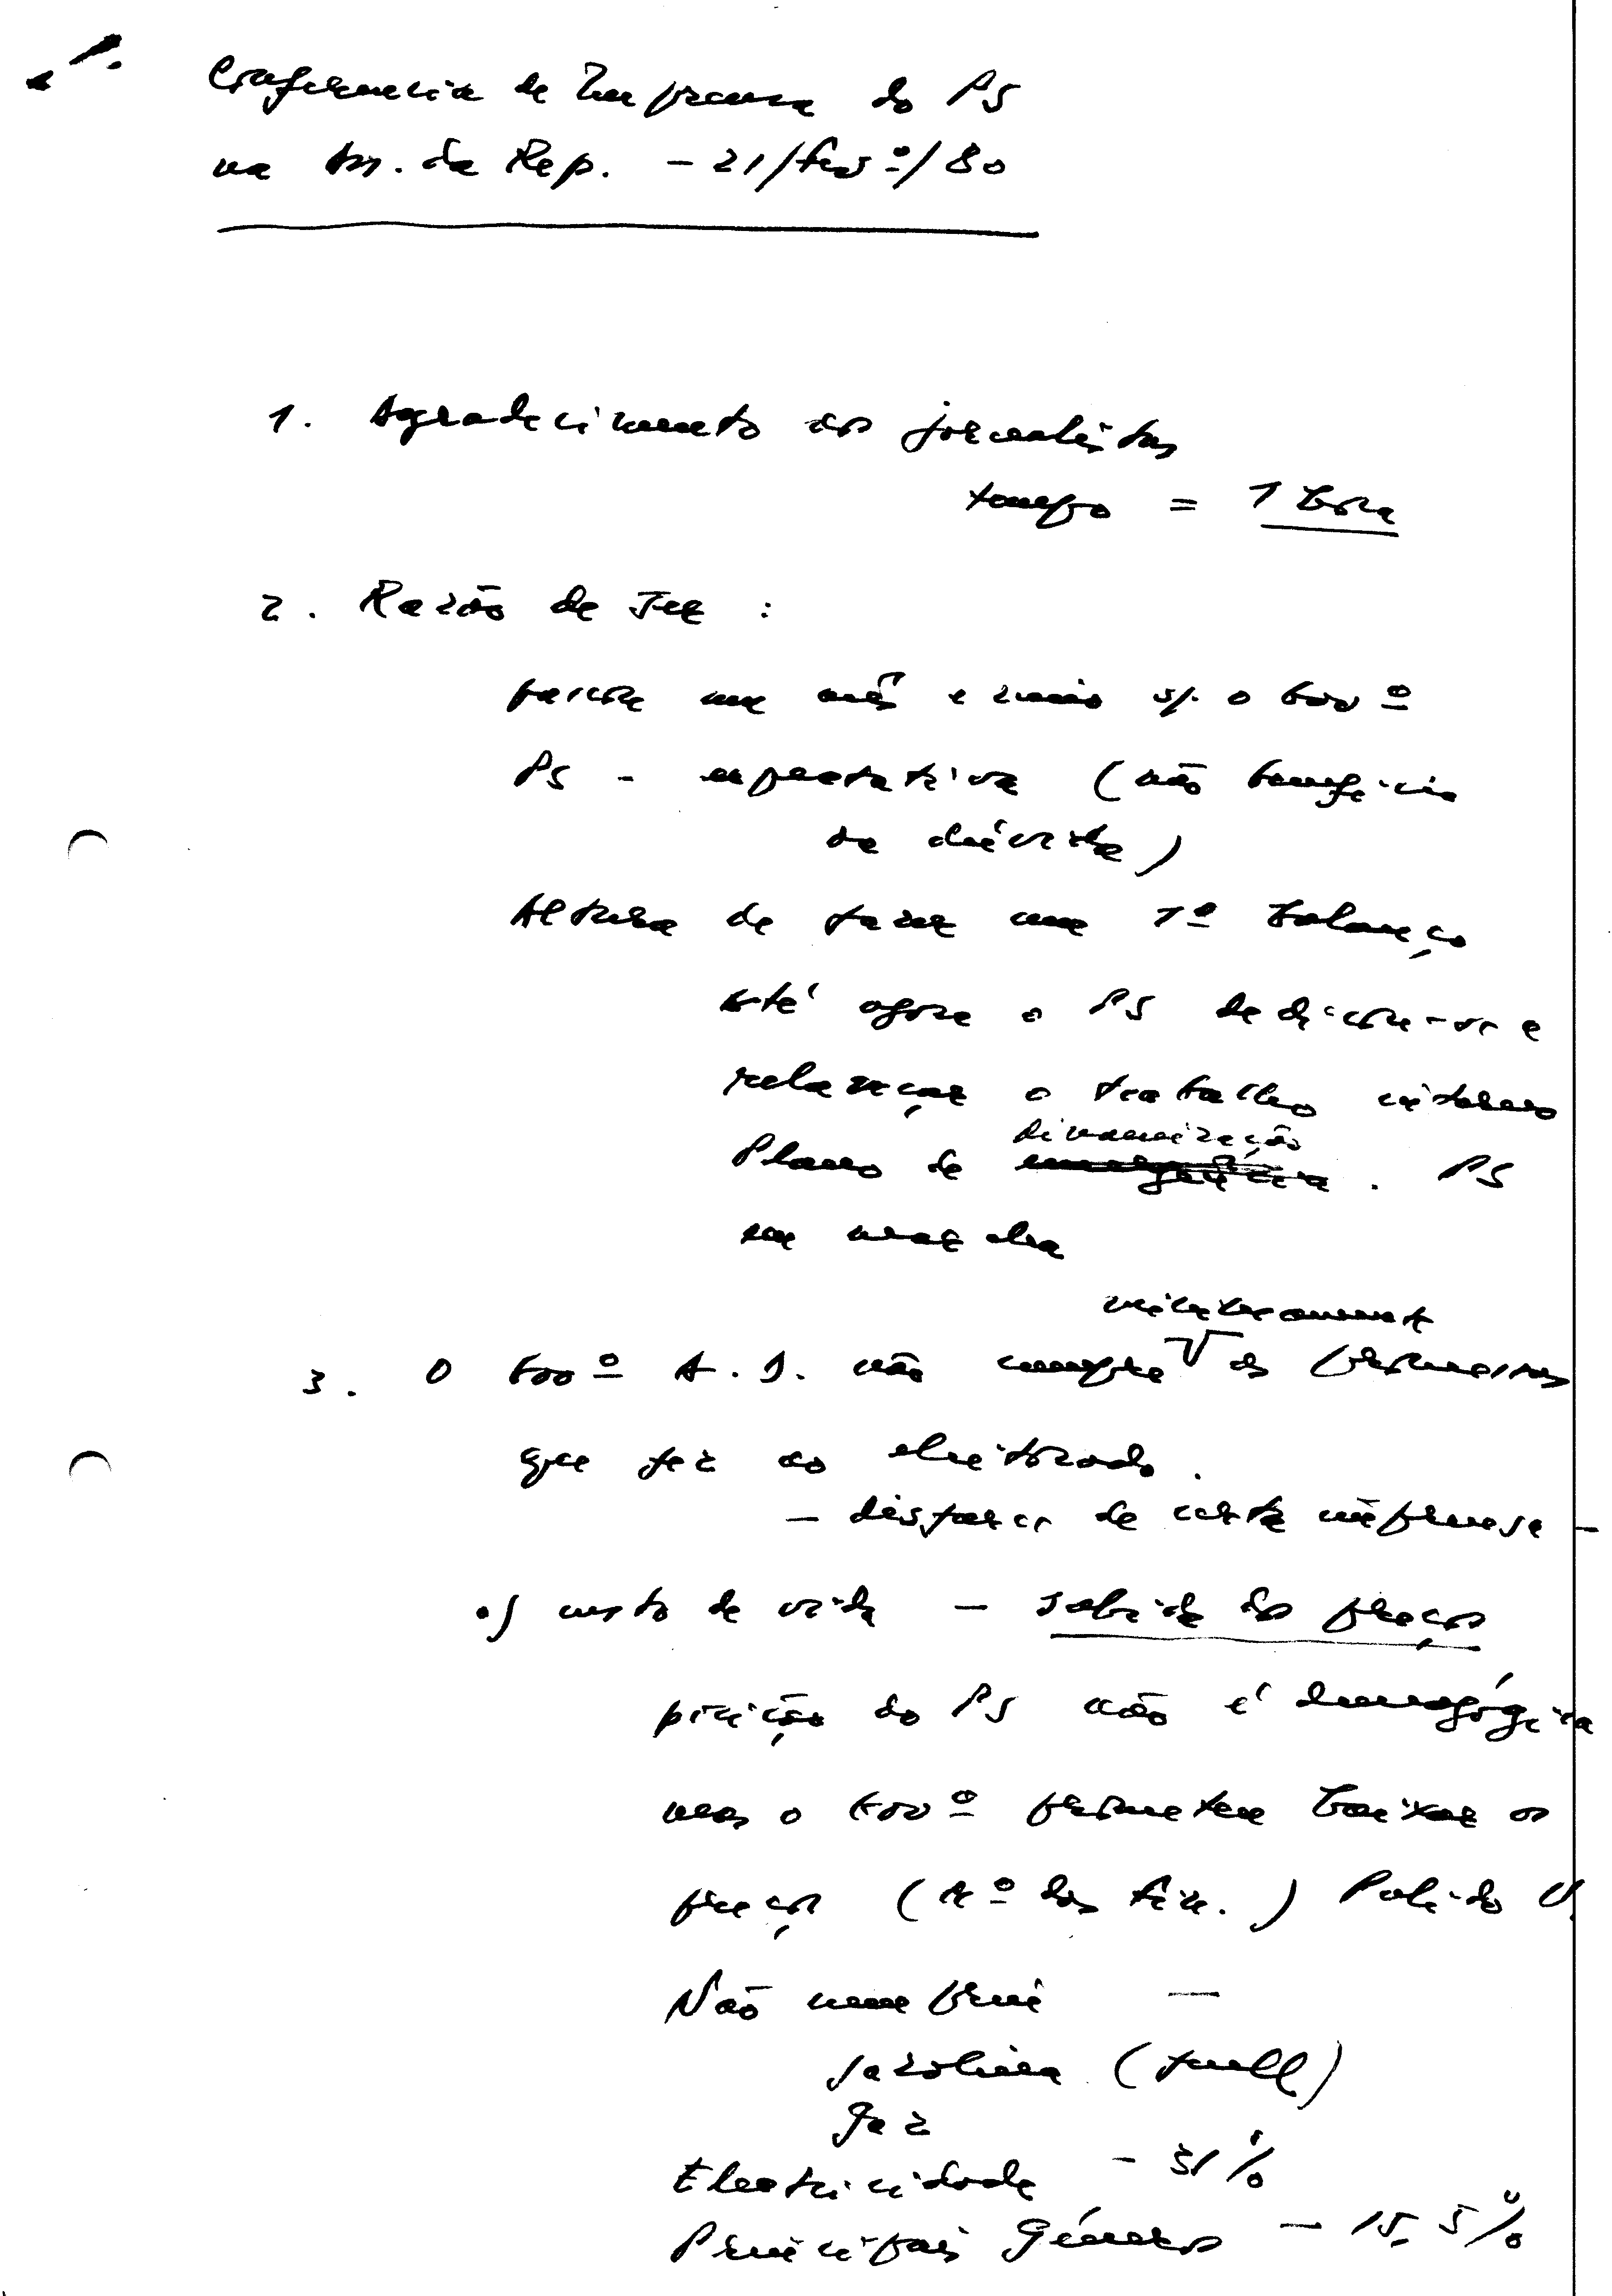 1.
Conferencia de Imprensa do PS
na Ass. da Rep. - 21/fevº/80
1. Agradecimento aos jornalistas
tempo = 1 hora
2. Razão de ser :
passou um mês e meio s/. o Govº
PS - expectativa (não beneficio
da dúvida)
Altura de fazer um 1º balanço
Até agora o PS dedicou-se a
relançar o trabalho interno
dinamização
Plano de emergência. PS
em marcha
3. O Govº A.D. não cumpre os promessas
que fez ao eleitorado.
- disfarce de certa imprensa -
a) custo de vida - subida dos preços
posição do PS não é demagógica
mas o Govº prometeu baixar os
preços (Mº das Fin.)
Não cumpriu —
gazolina (fuell)
gaz
Electricidade - 31%
Principais Géneros - 15,5%